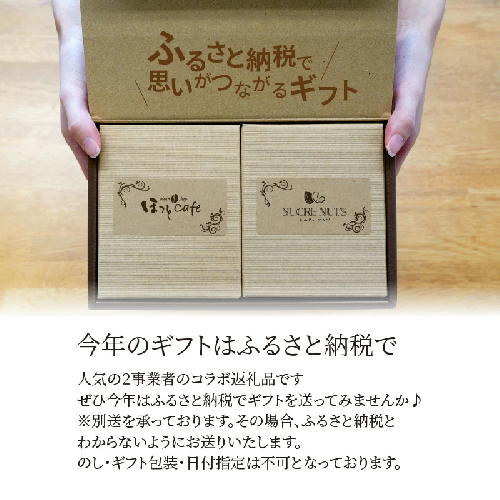 ふるさと納税で
思いがつながるギフト
ほっとcafe
SUCRE NUTS
今年のギフトはふるさと納税で
人気の2事業者のコラボ返礼品です
ぜひ今年はふるさと納税でギフトを送ってみませんか♪
※別送を承っております。その場合、ふるさと納税と
わからないようにお送りいたします。
のし・ギフト包装・日付指定は不可となっております。